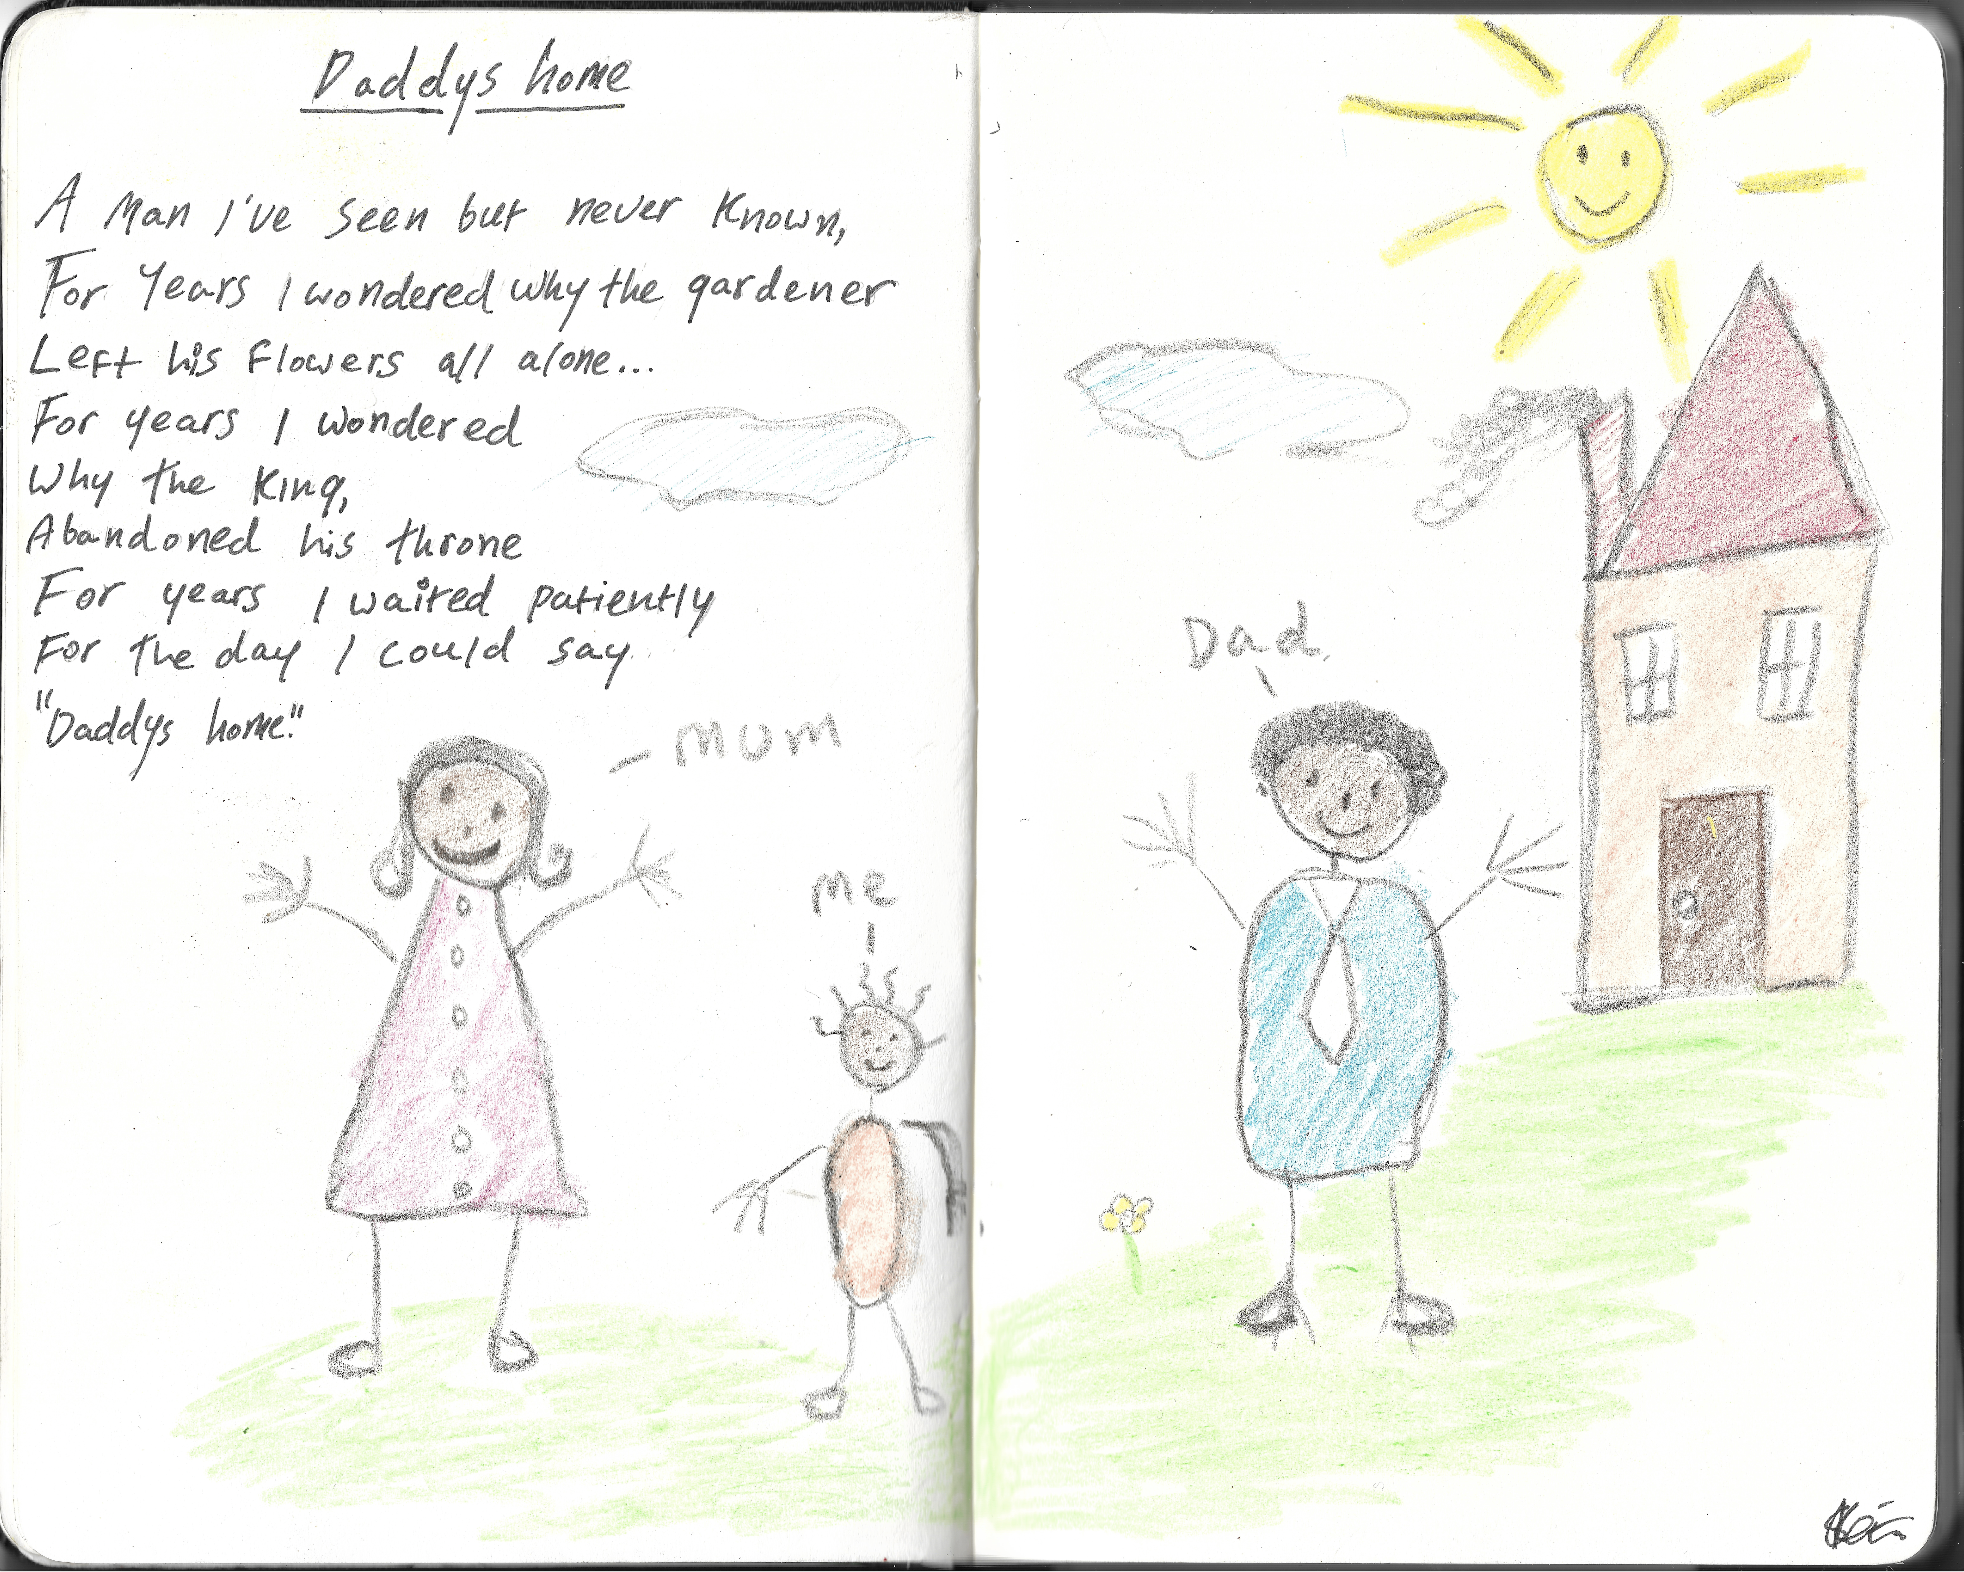 Daddys home
A Man I've seen but never Known,
For Years I wondered why the gardener
Left his Flowers all alone...
For years I wondered
Why the King,
Abandoned his throne
For years I waited patiently
For the day I could say
"Daddys home."
Mum
Me
Dad